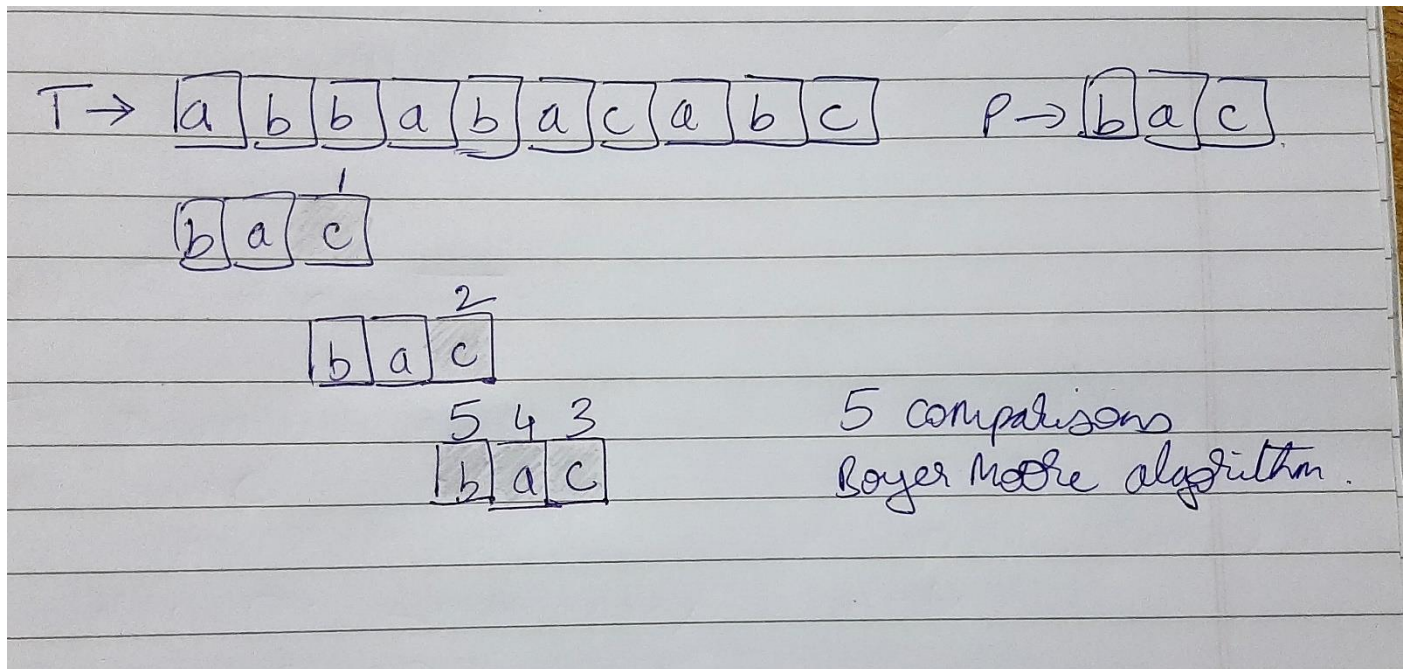 T → a b b a b a c a b c P → b a c
1
b a c
2
b a c
5 4 3
b a c
5 comparisons
Boyer Moore algorithm.